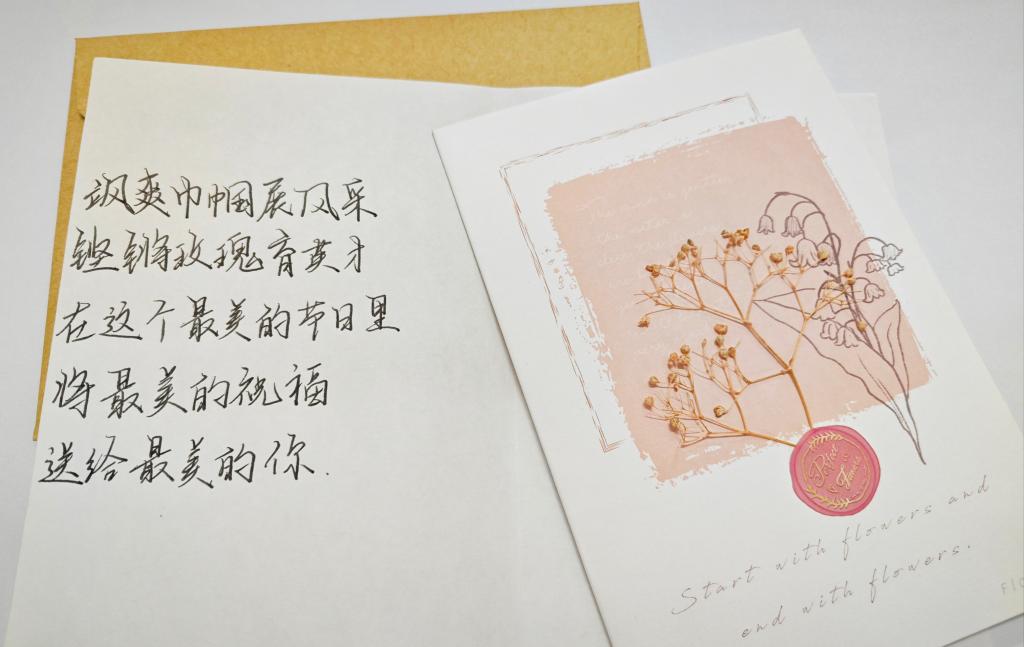 飒爽巾帼展风采
铿锵玫瑰育英才
在这个最美的节日里
将最美的祝福
送给最美的你.
Start with flowers and
end with flowers.